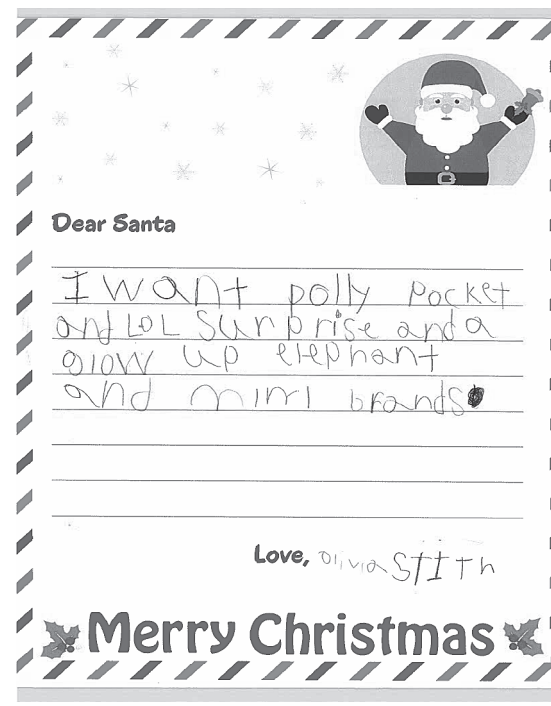 Dear Santa
I want polly pocket
and LOL Surprise and a
glow up elephant
and mini brands
Love, Olivia STITh
Merry Christmas